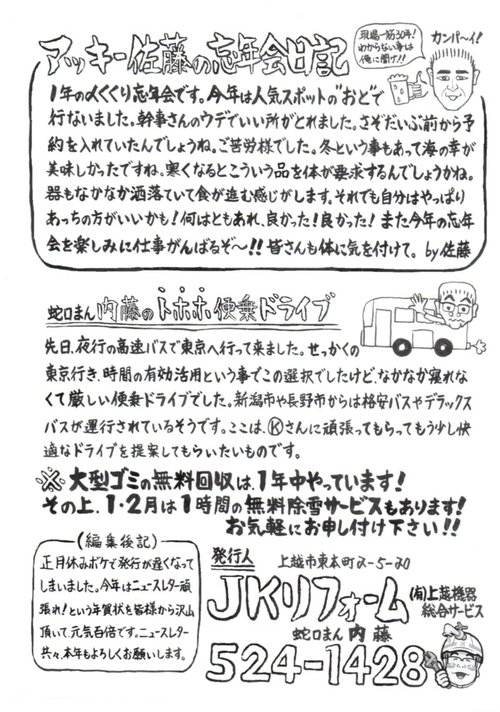 アッキー佐藤の忘年会日記
現場一筋30年!
わからない事は
俺に聞け!!
カンパ〜イ!
1年の〆くくり忘年会です。今年は人気スポットの"おど"で
行ないました。幹事さんのウデでいい所がとれました。さぞだいぶ前から予
約を入れていたんでしょうね。ご苦労様でした。冬という事もあって海の幸が
美味しかったですね。寒くなるとこういう品を体が要求するんでしょうかね。
器もなかなか洒落ていて食が進む感じがします。それでも自分はやっぱり
あっちの方がいいかも!何はともあれ、良かった!良かった!また今年の忘年
会を楽しみに仕事がんばるぞ〜!!皆さんも体に気を付けて。by佐藤
蛇口まん内藤のトホホ便乗ドライブ
先日、夜行の高速バスで東京へ行って来ました。せっかくの
東京行き、時間の有効活用という事でこの選択でしたけど、なかなか寝れな
くて厳しい便乗ドライブでした。新潟市や長野市からは格安バスやデラックス
バスが運行されているそうです。ここは、Ⓚさんに頑張ってもらってもう少し快
適なドライブを提案してもらいたいものです。
※大型ゴミの無料回収は、1年中やっています!
その上、1・2月は1時間の無料除雪サービスもあります!
お気軽にお申し付け下さい!!
(編集後記)
正月休みボケで発行が遅くなって
しまいました。今年はニュースレター頑
張れ!という年賀状を皆様から沢山
頂いて、元気百倍です。ニュースレター
共々、本年もよろしくお願いします。
発行人
上越市東本町2-5-20
JKリフォーム
(有)上越機器
総合サービス
蛇口まん 内藤
524-1428